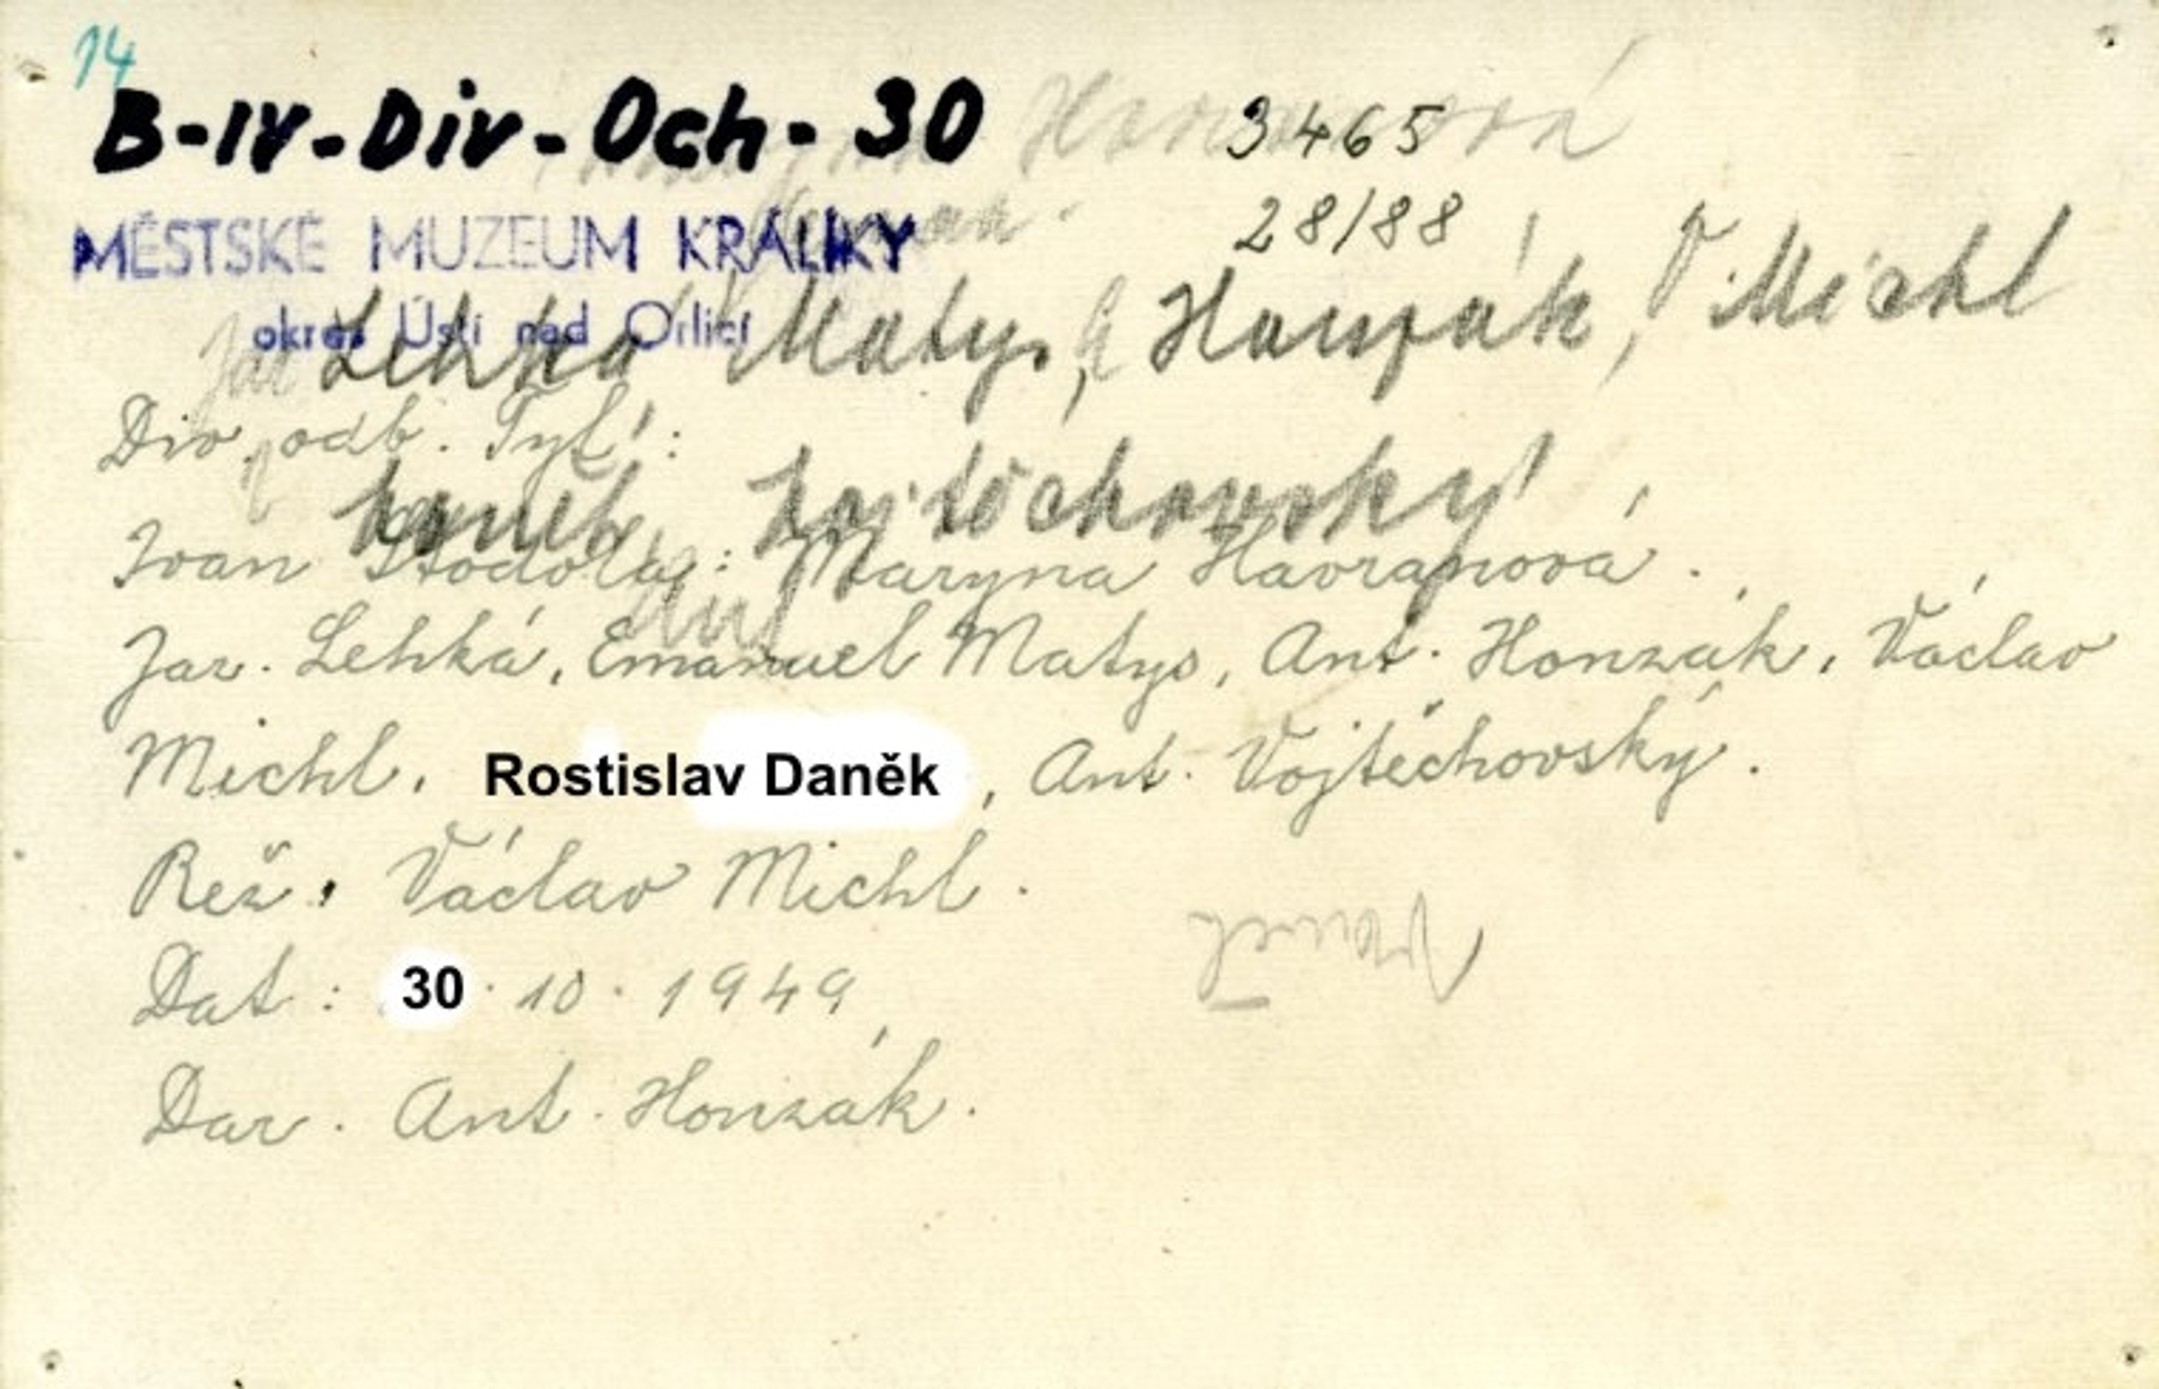 14
B-IV-Div-Och-30
3465
28/88
MĚSTSKÉ MUZEUM KRÁLÍKY
okres Ústí nad Orlicí
Lehká Matys, Honzák, V Michl
Div. odb. Tyl:
Vojtěchovský
Ivan Stodola: Maryna Havranová.
Jar. Lehká, Emanuel Matys, Ant. Honzák, Václav
Michl, Rostislav Daněk, Ant. Vojtěchovský.
Rež. Václav Michl.
Dat: 30. 10. 1949
Dar. Ant. Honzák.